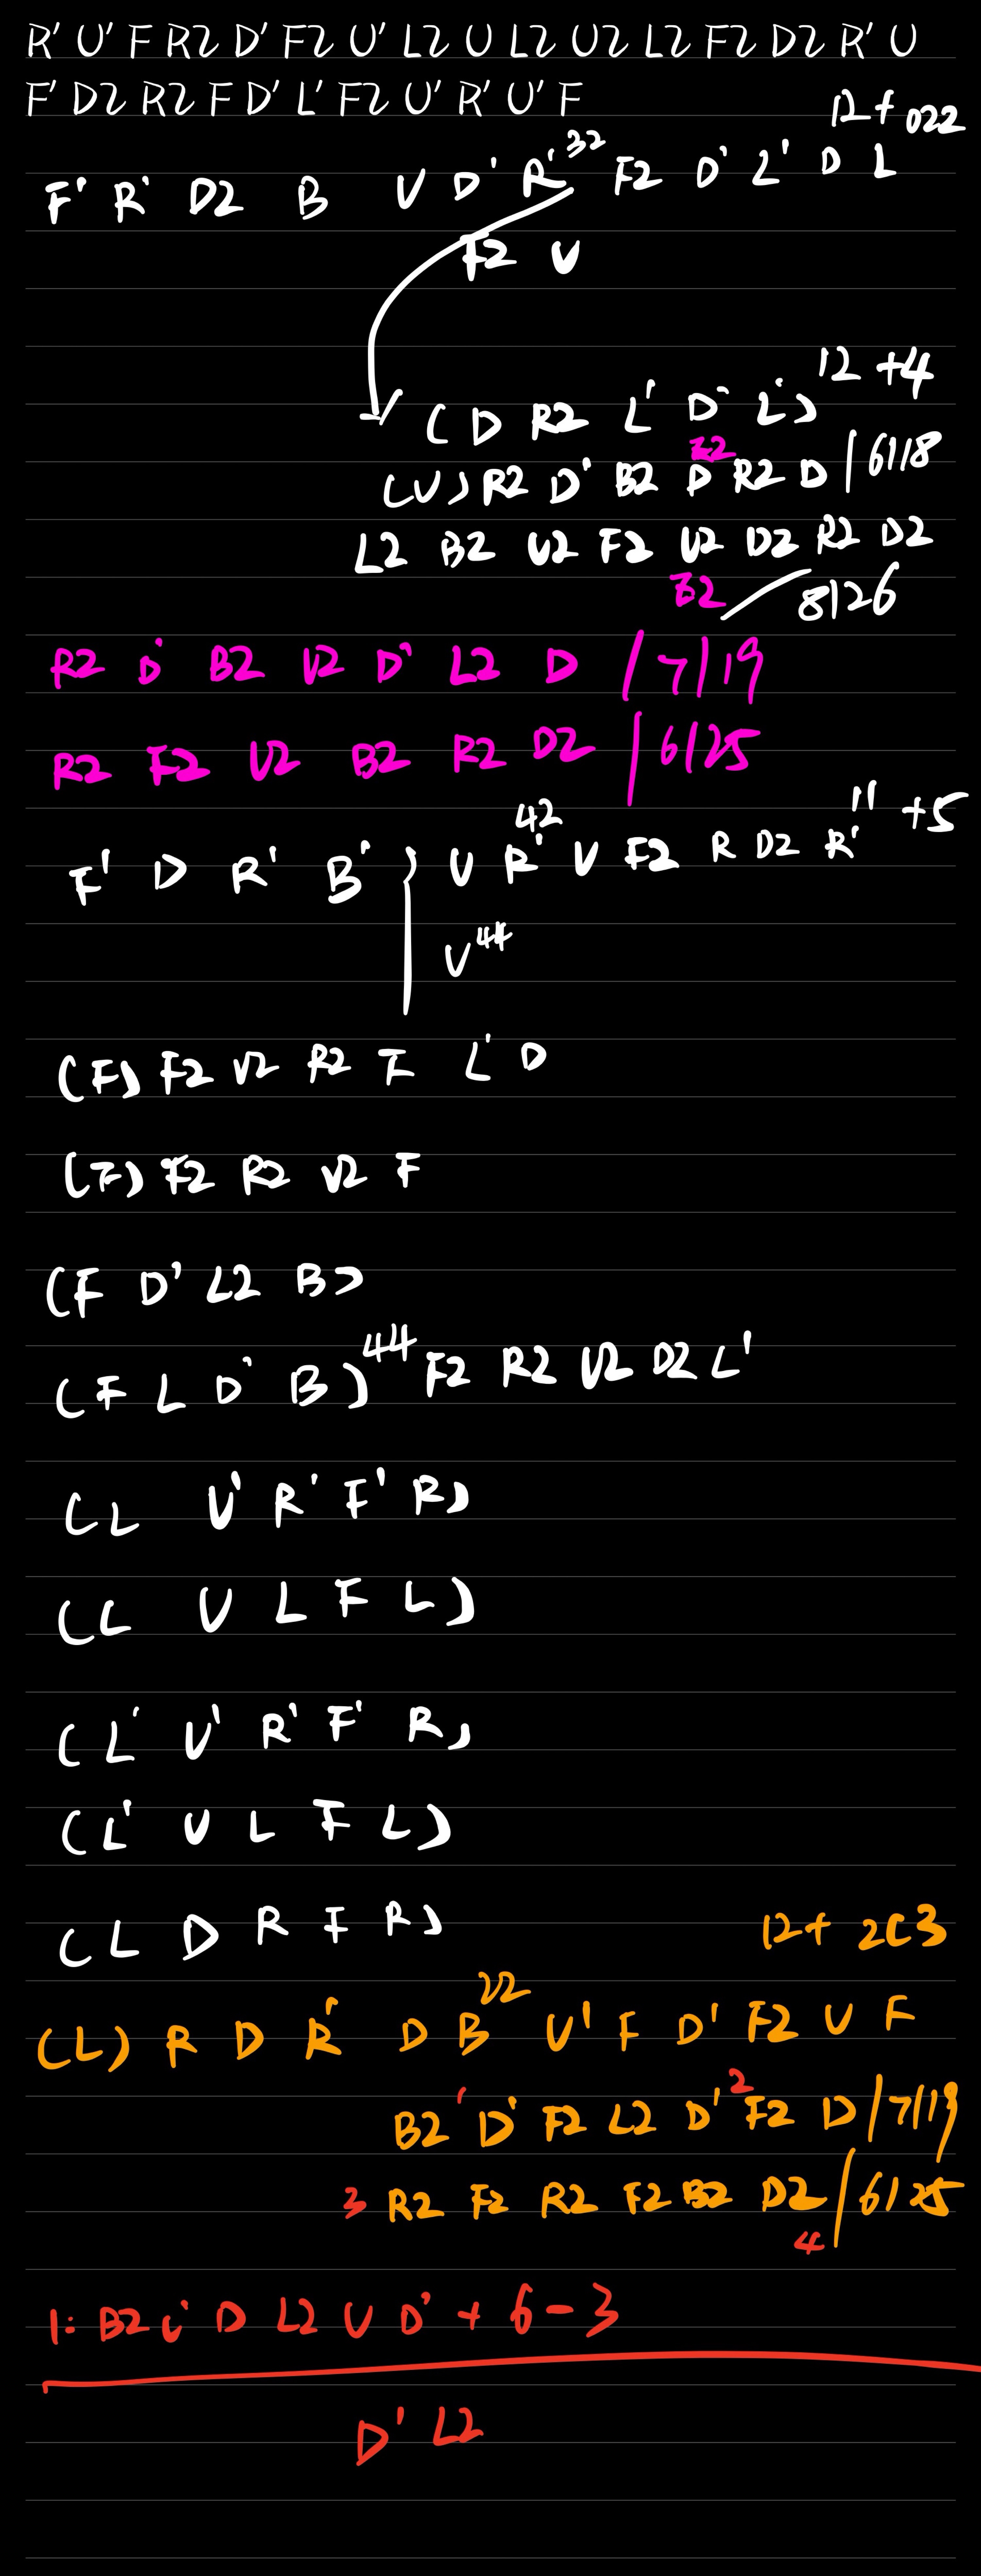 R' U' F R2 D' F2 U' L2 U L2 U2 L2 F2 D2 R' U
F' D2 R2 F D' L' F2 U' R' U' F
12+022
F' R' D2 B U D' R' 32 F2 D' L' D L
F2 U
(D R2 L' D' L') 12 +4
(U) R2 D' B2 D R2 D / 6118
L2 B2 U2 F2 U2 D2 R2 D2
/ 8126
R2 D' B2 U2 D' L2 D / 7/19
R2 F2 U2 B2 R2 D2 / 6/25
F' D R' B' } U R' 42 U F2 R D2 R' 11 +5
U 44
(F) F2 U2 R2 F L' D
(F) F2 R2 U2 F
(F D' L2 B)
(F L D' B) 44 F2 R2 U2 D2 L'
(L U' R' F' R)
(L U L F L)
(L' U' R' F' R)
(L' U L F L)
(L D R F R)
12+ 2C3
(L) R D R' D B 22 U' F D' F2 U F
B2 ' D' F2 L2 D' 2 F2 D / 7/19
3 R2 F2 R2 F2 B2 D2 / 6/25
4
1: B2 U' D L2 U D' + 6-3
D' L2